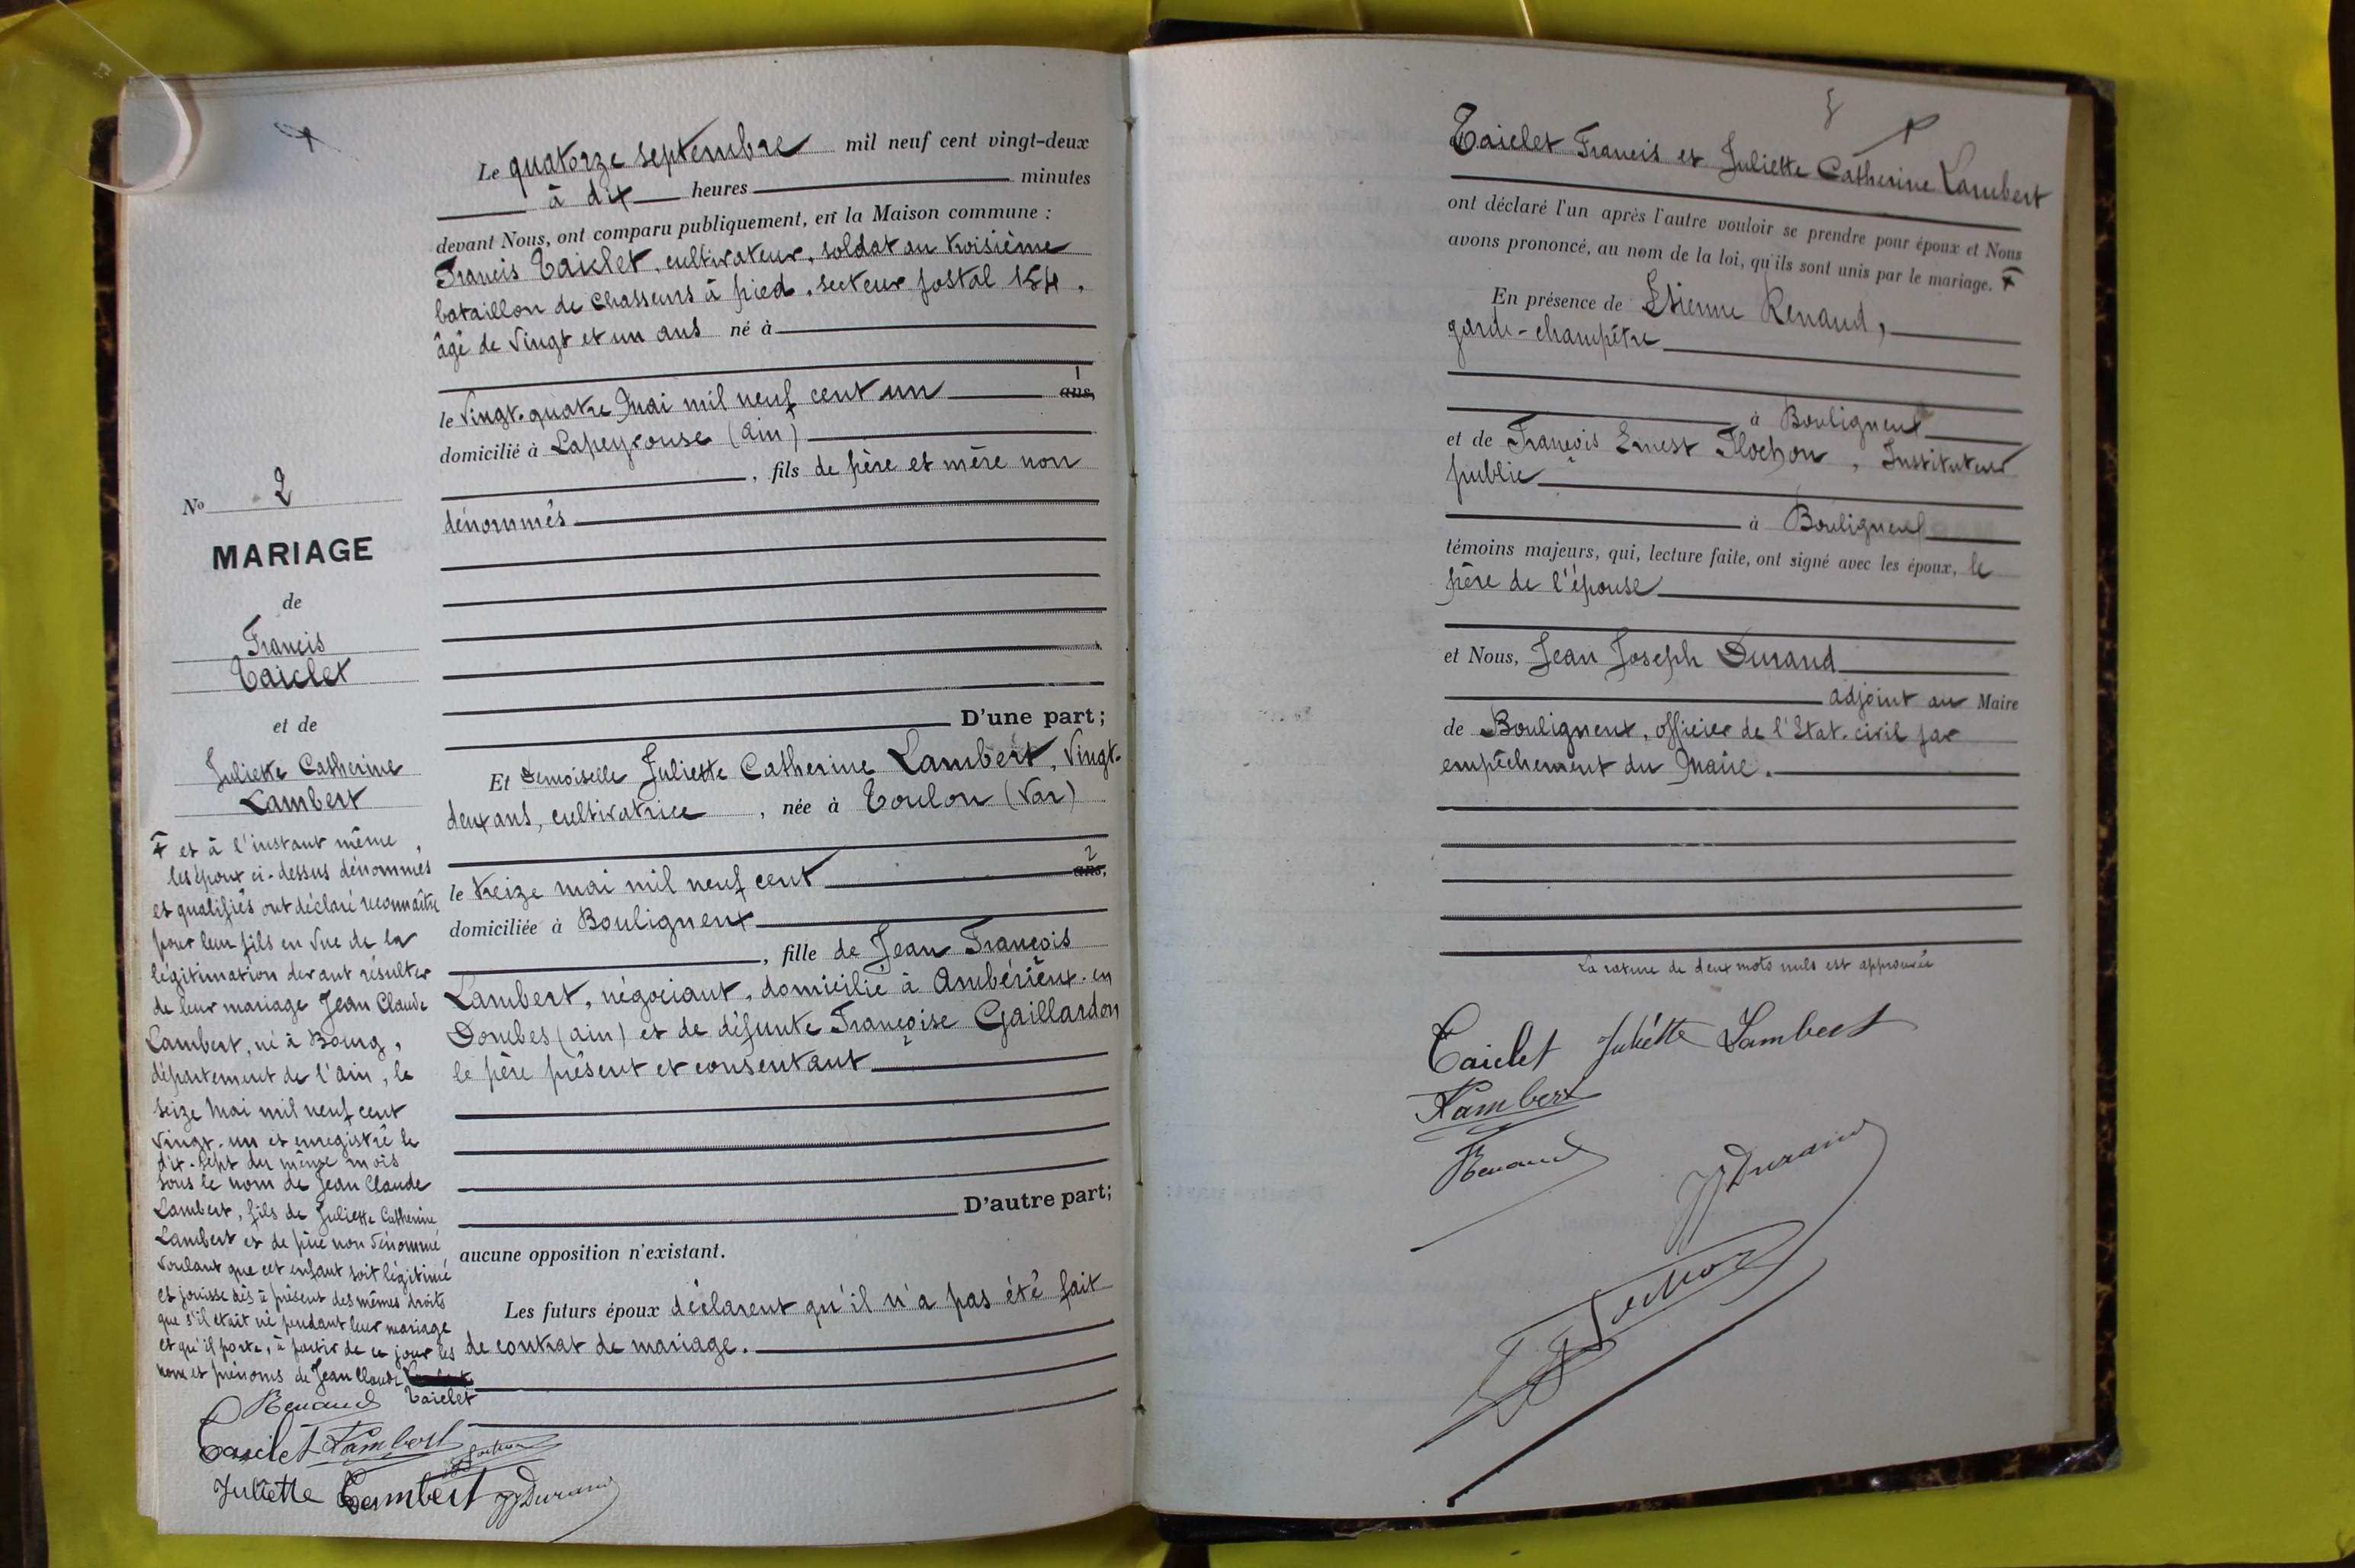 Le quatorze septembre mil neuf cent vingt-deux
à dix heures minutes
devant Nous, ont comparu publiquement, en la Maison commune :
Francis Taiclet, cultivateur, soldat au troisième
bataillon de chasseurs à pied, secteur postal 154,
âgé de vingt et un ans né à
le vingt-quatre Mai mil neuf cent un ans, 1
domicilié à Lapeyrouse (Ain)
, fils de père et mère non
dénommés
D'une part;
Et Demoiselle Juliette Catherine Lambert, vingt-
deux ans, cultivatrice , née à Toulon (Var)
le treize mai mil neuf cent ans, 2
domiciliée à Bouligneux
, fille de Jean François
Lambert, négociant, domicilié à Ambérieux-en
Dombes (Ain) et de défunte Françoise Gaillardon
le père présent et consentant
D'autre part;
aucune opposition n'existant.
Les futurs époux déclarent qu'il n'a pas été fait
de contrat de mariage.
No 2
MARIAGE
de
Francis
Taiclet
et de
Juliette Catherine
Lambert
et à l'instant même,
les époux ci-dessus dénommés
et qualifiés ont déclaré reconnaître
pour leur fils en vue de la
légitimation devant résulter
de leur mariage Jean Claude
Lambert, né à Bourg,
département de l'Ain, le
seize Mai mil neuf cent
vingt-un et enregistré le
dix-sept du même mois
sous le nom de Jean Claude
Lambert, fils de Juliette Catherine
Lambert et de père non dénommé
voulant que cet enfant soit légitimé
et jouisse dès à présent des mêmes droits
que s'il était né pendant leur mariage
et qu'il porte, à partir de ce jour les
nom et prénoms de Jean Claude
Taiclet
Renaud
Taiclet Lambert
Juliette Lambert JJDurand
Taiclet Francis et Juliette Catherine Lambert
ont déclaré l'un après l'autre vouloir se prendre pour époux et Nous
avons prononcé, au nom de la loi, qu'ils sont unis par le mariage.
En présence de Etienne Renaud,
garde-champêtre
à Bouligneux
et de François Ernest Flochon, Instituteur
public
à Bouligneux
témoins majeurs, qui, lecture faite, ont signé avec les époux, le
père de l'épouse
et Nous, Jean Joseph Durand
adjoint au Maire
de Bouligneux, officier de l'Etat-civil par
empêchement du Maire.
La rature de deux mots nuls est approuvée
Taiclet Juliette Lambert
Lambert
Renaud
JJDurand